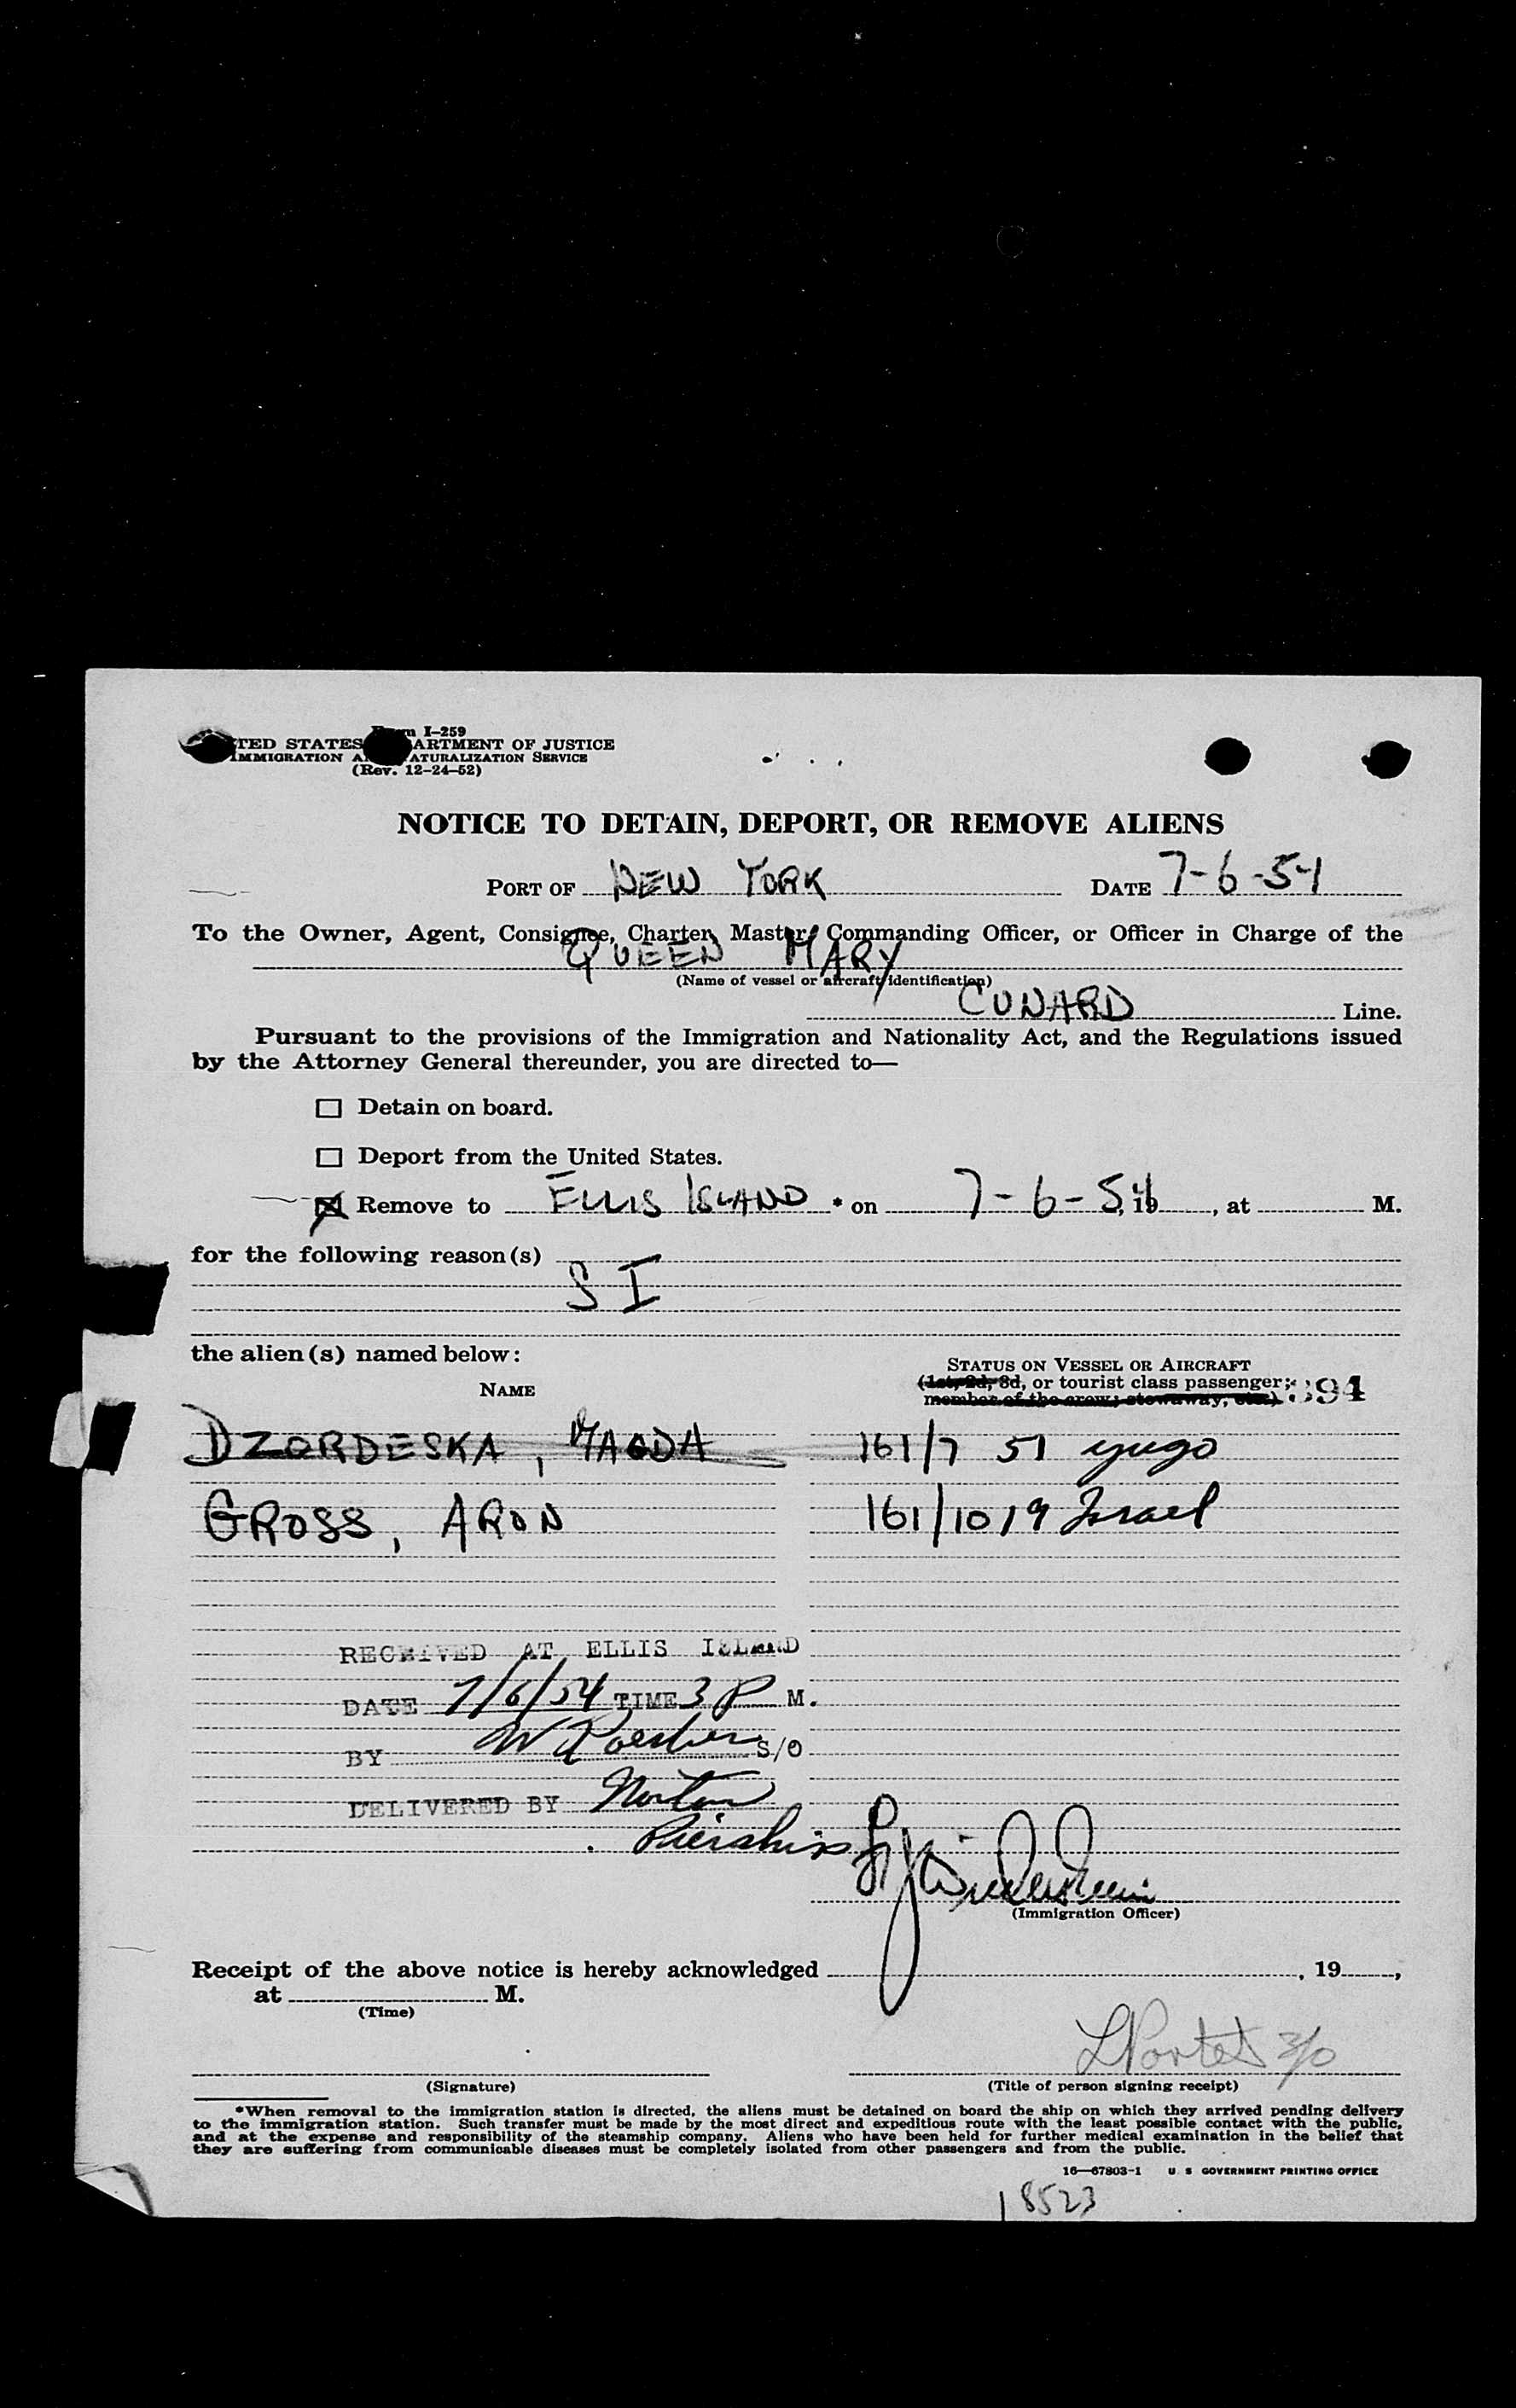 Form I-259
UNITED STATES DEPARTMENT OF JUSTICE
IMMIGRATION AND NATURALIZATION SERVICE
(Rev. 12-24-52)
NOTICE TO DETAIN, DEPORT, OR REMOVE ALIENS
PORT OF NEW YORK DATE 7-6-54
To the Owner, Agent, Consignee, Charter, Master, Commanding Officer, or Officer in Charge of the
QUEEN MARY
(Name of vessel or aircraft identification)
CUNARD Line.
Pursuant to the provisions of the Immigration and Nationality Act, and the Regulations issued
by the Attorney General thereunder, you are directed to—
Detain on board.
Deport from the United States.
Remove to ELLIS ISLAND * on 7-6-54, 19, at M.
for the following reason(s)
S I
the alien(s) named below:
STATUS ON VESSEL OR AIRCRAFT
NAME
(1st, 2d, 3d, or tourist class passenger;
member of the crew; stowaway, etc.)
394
DZORDESKA, MAGDA 161/7 51 yugo
GROSS, ARON 161/10 19 Israel
RECEIVED AT ELLIS ISLAND
DATE 7/6/54 TIME 3 P M.
BY W S/O
DELIVERED BY Norton
(Immigration Officer)
Receipt of the above notice is hereby acknowledged , 19 ,
at M.
(Time)
L Porter 3/0
(Signature) (Title of person signing receipt)
*When removal to the immigration station is directed, the aliens must be detained on board the ship on which they arrived pending delivery
to the immigration station. Such transfer must be made by the most direct and expeditious route with the least possible contact with the public,
and at the expense and responsibility of the steamship company. Aliens who have been held for further medical examination in the belief that
they are suffering from communicable diseases must be completely isolated from other passengers and from the public.
16—67803-1 U S GOVERNMENT PRINTING OFFICE
18523